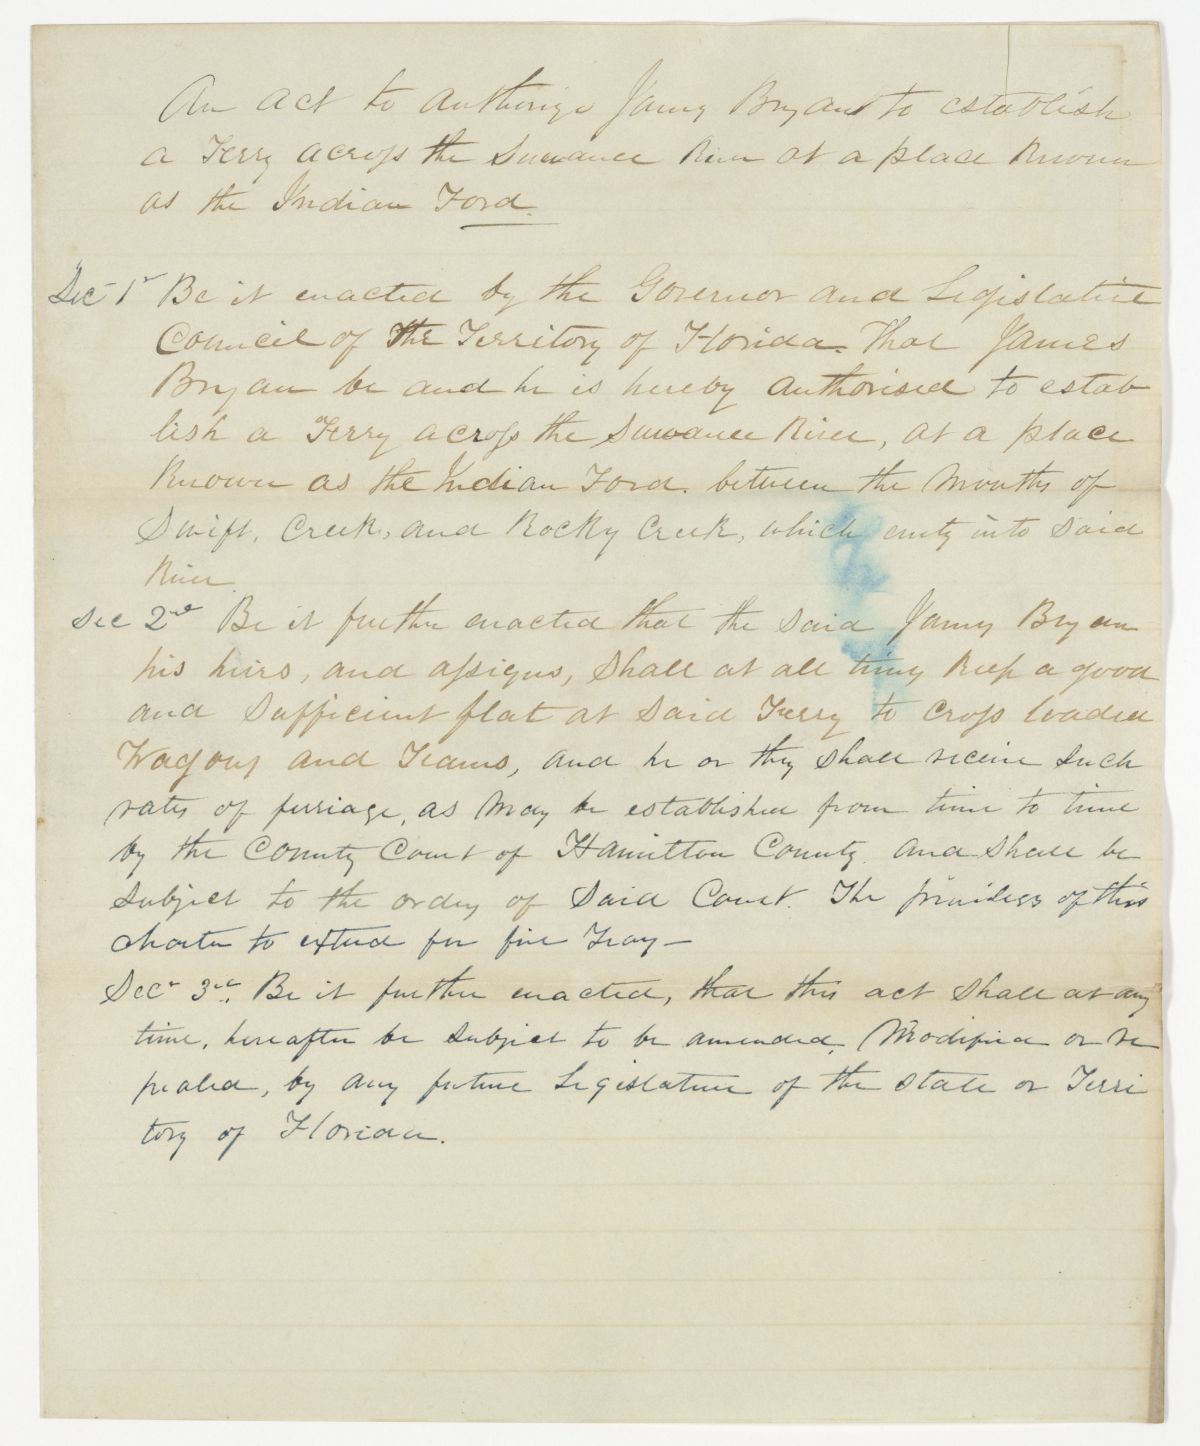 An act to authorize James Bryant to establish
a Ferry across the Suwanee River at a place Known
as the Indian Ford.
Sec 1st Be it enacted by the Governor and Legislative
Council of the Territory of Florida. That James
Bryan be and he is hereby authorised to estab
lish a Ferry across the Suwanee River, at a place
Known as the Indian Ford. between the Mouths of
Swift, Creek, and Rocky Creek, which emty into Said
River.
Sec 2nd Be it further enacted that the said James Bryan
his heirs, and assigns, Shall at all times Keep a good
and Sufficient flat at Said Ferry to cross loaded
Wagons and Teams, and he or they shall receive Such
rates of ferriage, as May be established from time to time
by the County Court of Hamilton County. and shall be
Subject to the orders of Said Court. The privileges of this
charter to extend for five Years—
Sec 3rd. Be it further enacted, that this act shall at any
time, hereafter be subject to be amended, Modified or re
pealed, by any future Legislature of the State or Terri
tory of Florida.